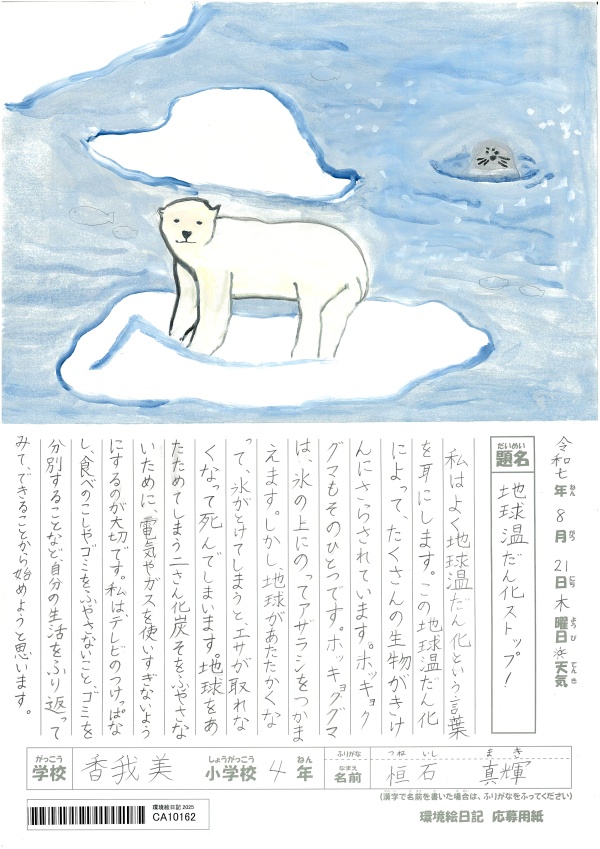 令和七年 8月 21日 木曜日 天気
ねん がつ にち ようび てんき
だいめい
題名 地球温だん化ストップ!
私はよく地球温だん化という言葉
を耳にします。この地球温だん化
によって、たくさんの生物がきけ
んにさらされています。ホッキョク
グマもそのひとつです。ホッキョグマ
は、氷の上にのってアザラシをつかま
えます。しかし、地球があたたかくな
って、氷がとけてしまうと、エサが取れな
くなって死んでしまいます。地球をあ
たためてしまう二さん化炭そをふやさな
いために、電気やガスを使いすぎないよう
にするのが大切です。私は、テレビのつけっぱな
し、食べのこしやゴミをふやさないこと、ゴミを
分別することなど、自分の生活をふり返って
みて、できることから始めようと思います。
がっこう しょうがっこう ねん
学校 香我美 小学校 4年
ふりがな つね いし まき
なまえ
名前 桓石 真輝
(漢字で名前を書いた場合は、ふりがなをふってください)
環境絵日記 2025
CA10162
環境絵日記 応募用紙